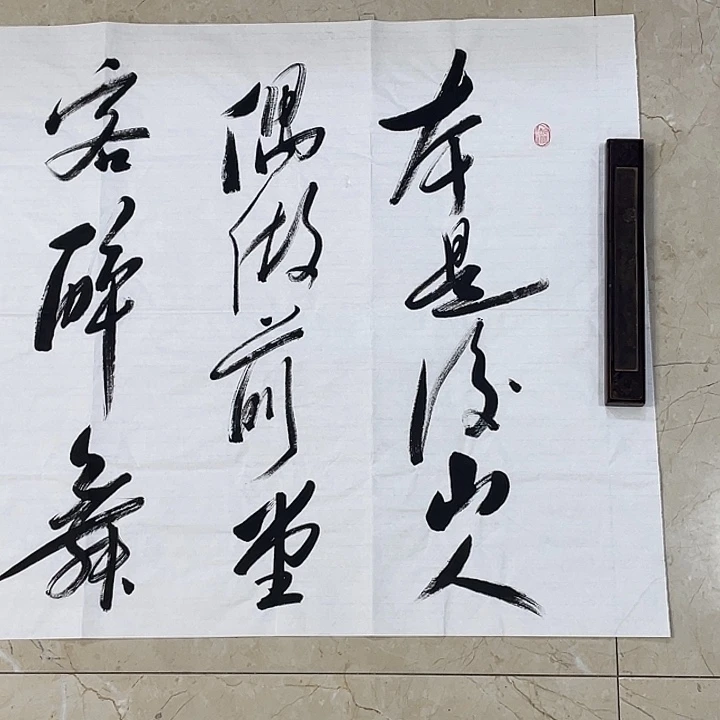 本是后山人
偶做前堂
客醉舞